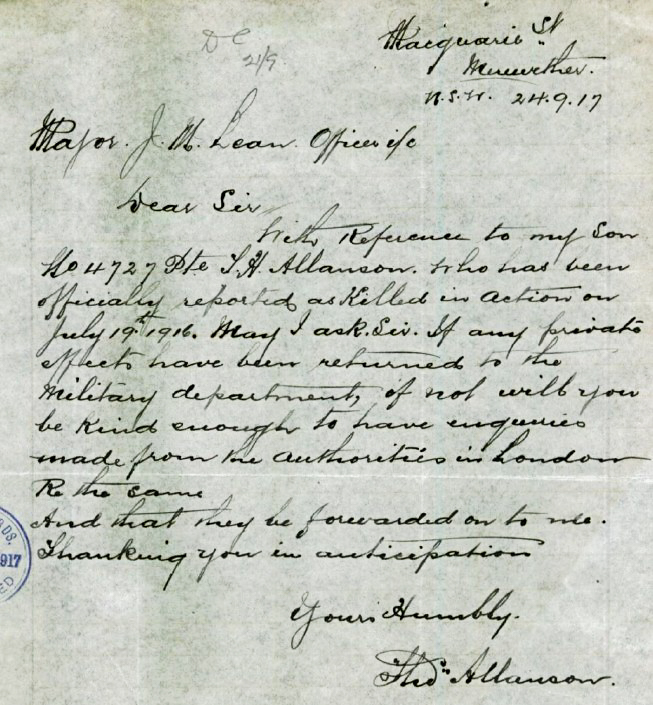 D C
21/9
Macquarie St
Merewether.
N.S.W. 24.9.17
Major. J. M. Lean. Officer i/c
Dear Sir
With Reference to my Son
No 4727 Pte T.H. Allanson. Who has been
officially reported as Killed in Action on
July 19th 1916. May I ask. Sir. If any private
effects have been returned to the
Military department, if not will you
be Kind enough to have enquiries
made from the Authorities in London
Re the same
And that they be forwarded on to me.
Thanking you in anticipation
Yours Humbly.
Thos Allanson.
917